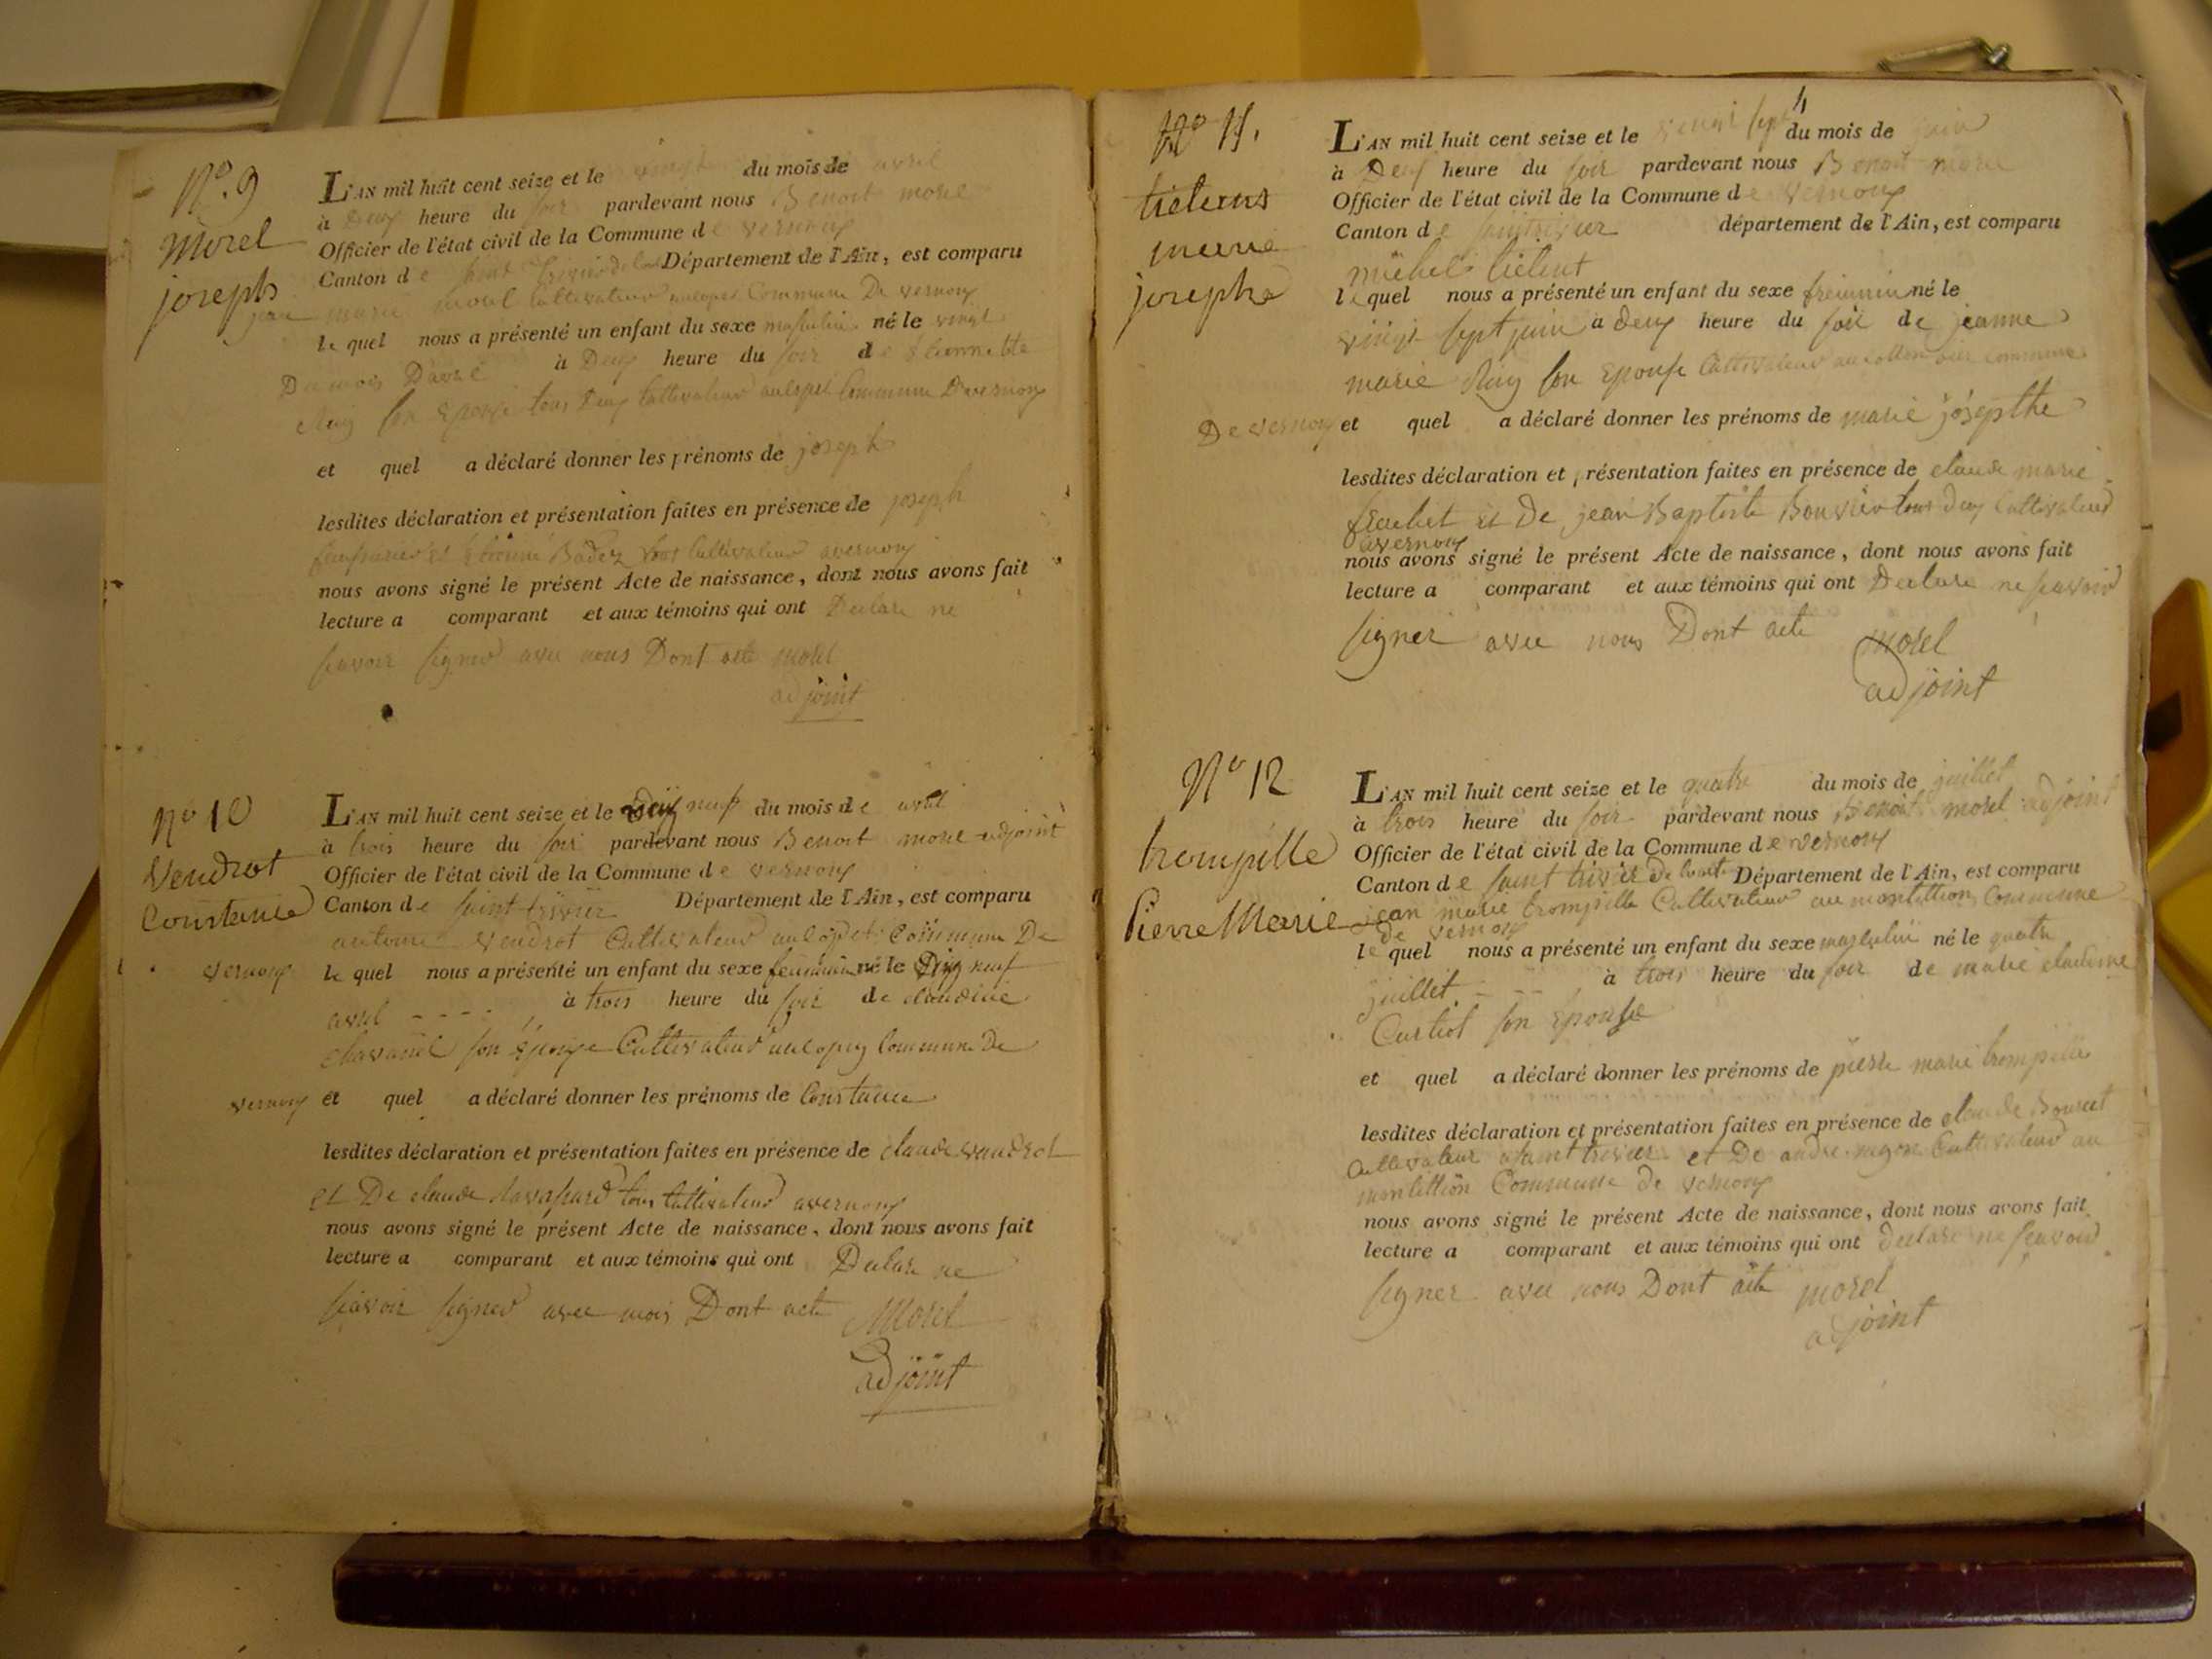 N.º 9
Morel
joseph
L'AN mil huit cent seize et le vingt du mois de avril
à Deux heure du soir pardevant nous Benoit morel
Officier de l'état civil de la Commune de vernoux
Canton de saint trivier Département de l'Ain, est comparu
jean marie morel Cultivateur Commune De vernoux
lequel nous a présenté un enfant du sexe masculin né le vingt
Du mois D'avril à Deux heure du soir de
son Epouse tous Deux Cultivateur Commune De vernoux
et quel a déclaré donner les prénoms de joseph
lesdites déclaration et présentation faites en présence de joseph
tous Cultivateur a vernoux
nous avons signé le présent Acte de naissance, dont nous avons fait
lecture a comparant et aux témoins qui ont Declare ne
scavoir signer avec nous Dont acte morel
adjoint
Nº 10
Vendrot
Constance
L'AN mil huit cent seize et le Dix neuf du mois de avril
à trois heure du soir pardevant nous Benoit morel adjoint
Officier de l'état civil de la Commune de vernoux
Canton de saint trivier Département de l'Ain, est comparu
antoine vendrot Cultivateur Commune De
vernoux lequel nous a présenté un enfant du sexe feminin né le Dix neuf
avril - - - - à trois heure du soir de claudine
chavanel son Epouse Cultivateur Commune De
vernoux et quel a déclaré donner les prénoms de Constance
lesdites déclaration et présentation faites en présence de claude vendrot
et De claude tous Cultivateur a vernoux
nous avons signé le présent Acte de naissance, dont nous avons fait
lecture a comparant et aux témoins qui ont Declare ne
scavoir signer avec nous Dont acte Morel
adjoint
Nº 11.
marie
josephe
L'AN mil huit cent seize et le vingt sept du mois de juin
à Deux heure du soir pardevant nous Benoit morel
Officier de l'état civil de la Commune de vernoux
Canton de saint trivier département de l'Ain, est comparu
michel
lequel nous a présenté un enfant du sexe feminin né le
vingt sept juin à deux heure du soir de jeanne
marie son Epouse Cultivateur commune
De vernoux et quel a déclaré donner les prénoms de marie josepthe
lesdites déclaration et présentation faites en présence de claude marie
et De jean Baptiste Bouvier tous deux Cultivateur
a vernoux
nous avons signé le présent Acte de naissance, dont nous avons fait
lecture a comparant et aux témoins qui ont Declare ne scavoir
signer avec nous Dont acte morel
adjoint
Nº 12
trompille
Pierre Marie
L'AN mil huit cent seize et le quatre du mois de juillet
à trois heure du soir pardevant nous Benoit morel adjoint
Officier de l'état civil de la Commune de vernoux
Canton de saint trivier Département de l'Ain, est comparu
jean marie trompille Cultivateur au montillion Commune
de vernoux
lequel nous a présenté un enfant du sexe masculin né le quatre
juillet - - - à trois heure du soir de marie claudine
son Epouse
et quel a déclaré donner les prénoms de pierre marie trompille
lesdites déclaration et présentation faites en présence de claude
Cultivateur a saint trivier et De andre Cultivateur au
montillion Commune de vernoux
nous avons signé le présent Acte de naissance, dont nous avons fait
lecture a comparant et aux témoins qui ont declare ne scavoir
signer avec nous Dont acte morel
adjoint